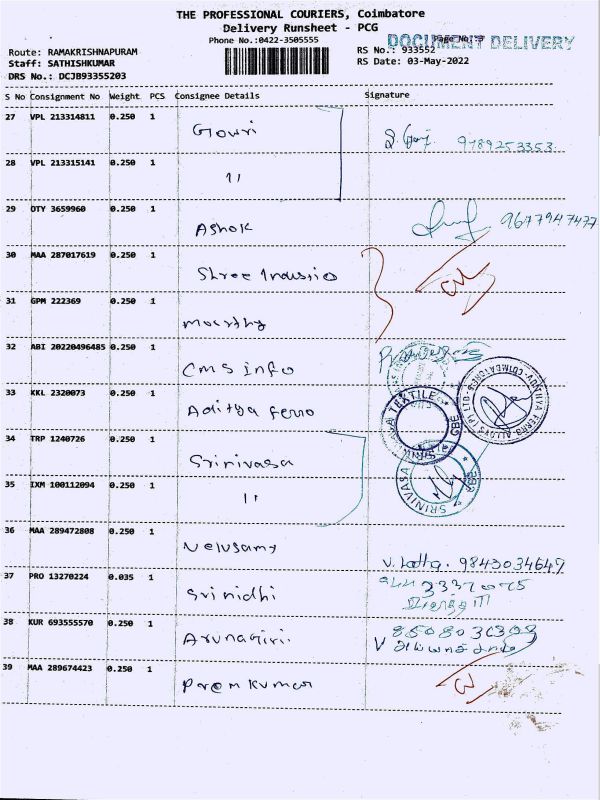 THE PROFESSIONAL COURIERS, Coimbatore
Delivery Runsheet - PCG
Phone No.:0422-3505555
DOCUMENT DELIVERY
Route: RAMAKRISHNAPURAM
Staff: SATHISHKUMAR
DRS No.: DCJB93355203
RS No.: 933552
RS Date: 03-May-2022
S No Consignment No Weight PCS Consignee Details Signature
27 VPL 213314811 0.250 1 Gowri 9789253353
28 VPL 213315141 0.250 1 11
29 OTY 3659960 0.250 1 Ashok 9677947477
30 MAA 287017619 0.250 1 Shree Industries
31 GPM 222369 0.250 1 Moorthy
32 ABI 20220496485 0.250 1 CMS info
33 KKL 2320073 0.250 1 Aditya Ferro
34 TRP 1240726 0.250 1 Srinivasa
35 IXM 100112094 0.250 1 11
36 MAA 289472808 0.250 1 Velusamy V. Latha. 9843034647
37 PRO 13270224 0.035 1 Srinidhi
38 KUR 693555570 0.250 1 Arunagiri.
39 MAA 289674423 0.250 1 Premkumar
ADITHYA FERRO ALLOYS (P) LTD COIMBATORE
TEXTILE
SRINIVASA